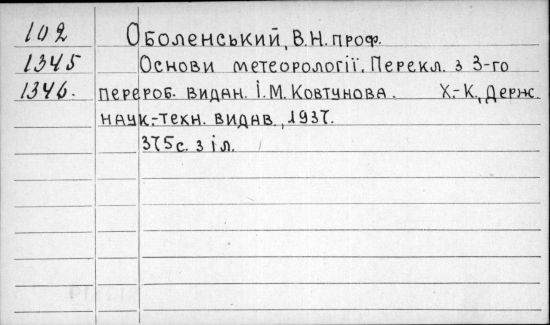 102 Оболенський, В.Н. проф.
1345 Основи метеорології. Перекл. з 3-го
1346. перероб. видан. І.М. Ковтунова. Х.-К., Держ.
наук.-техн. видав., 1937.
375с. з іл.